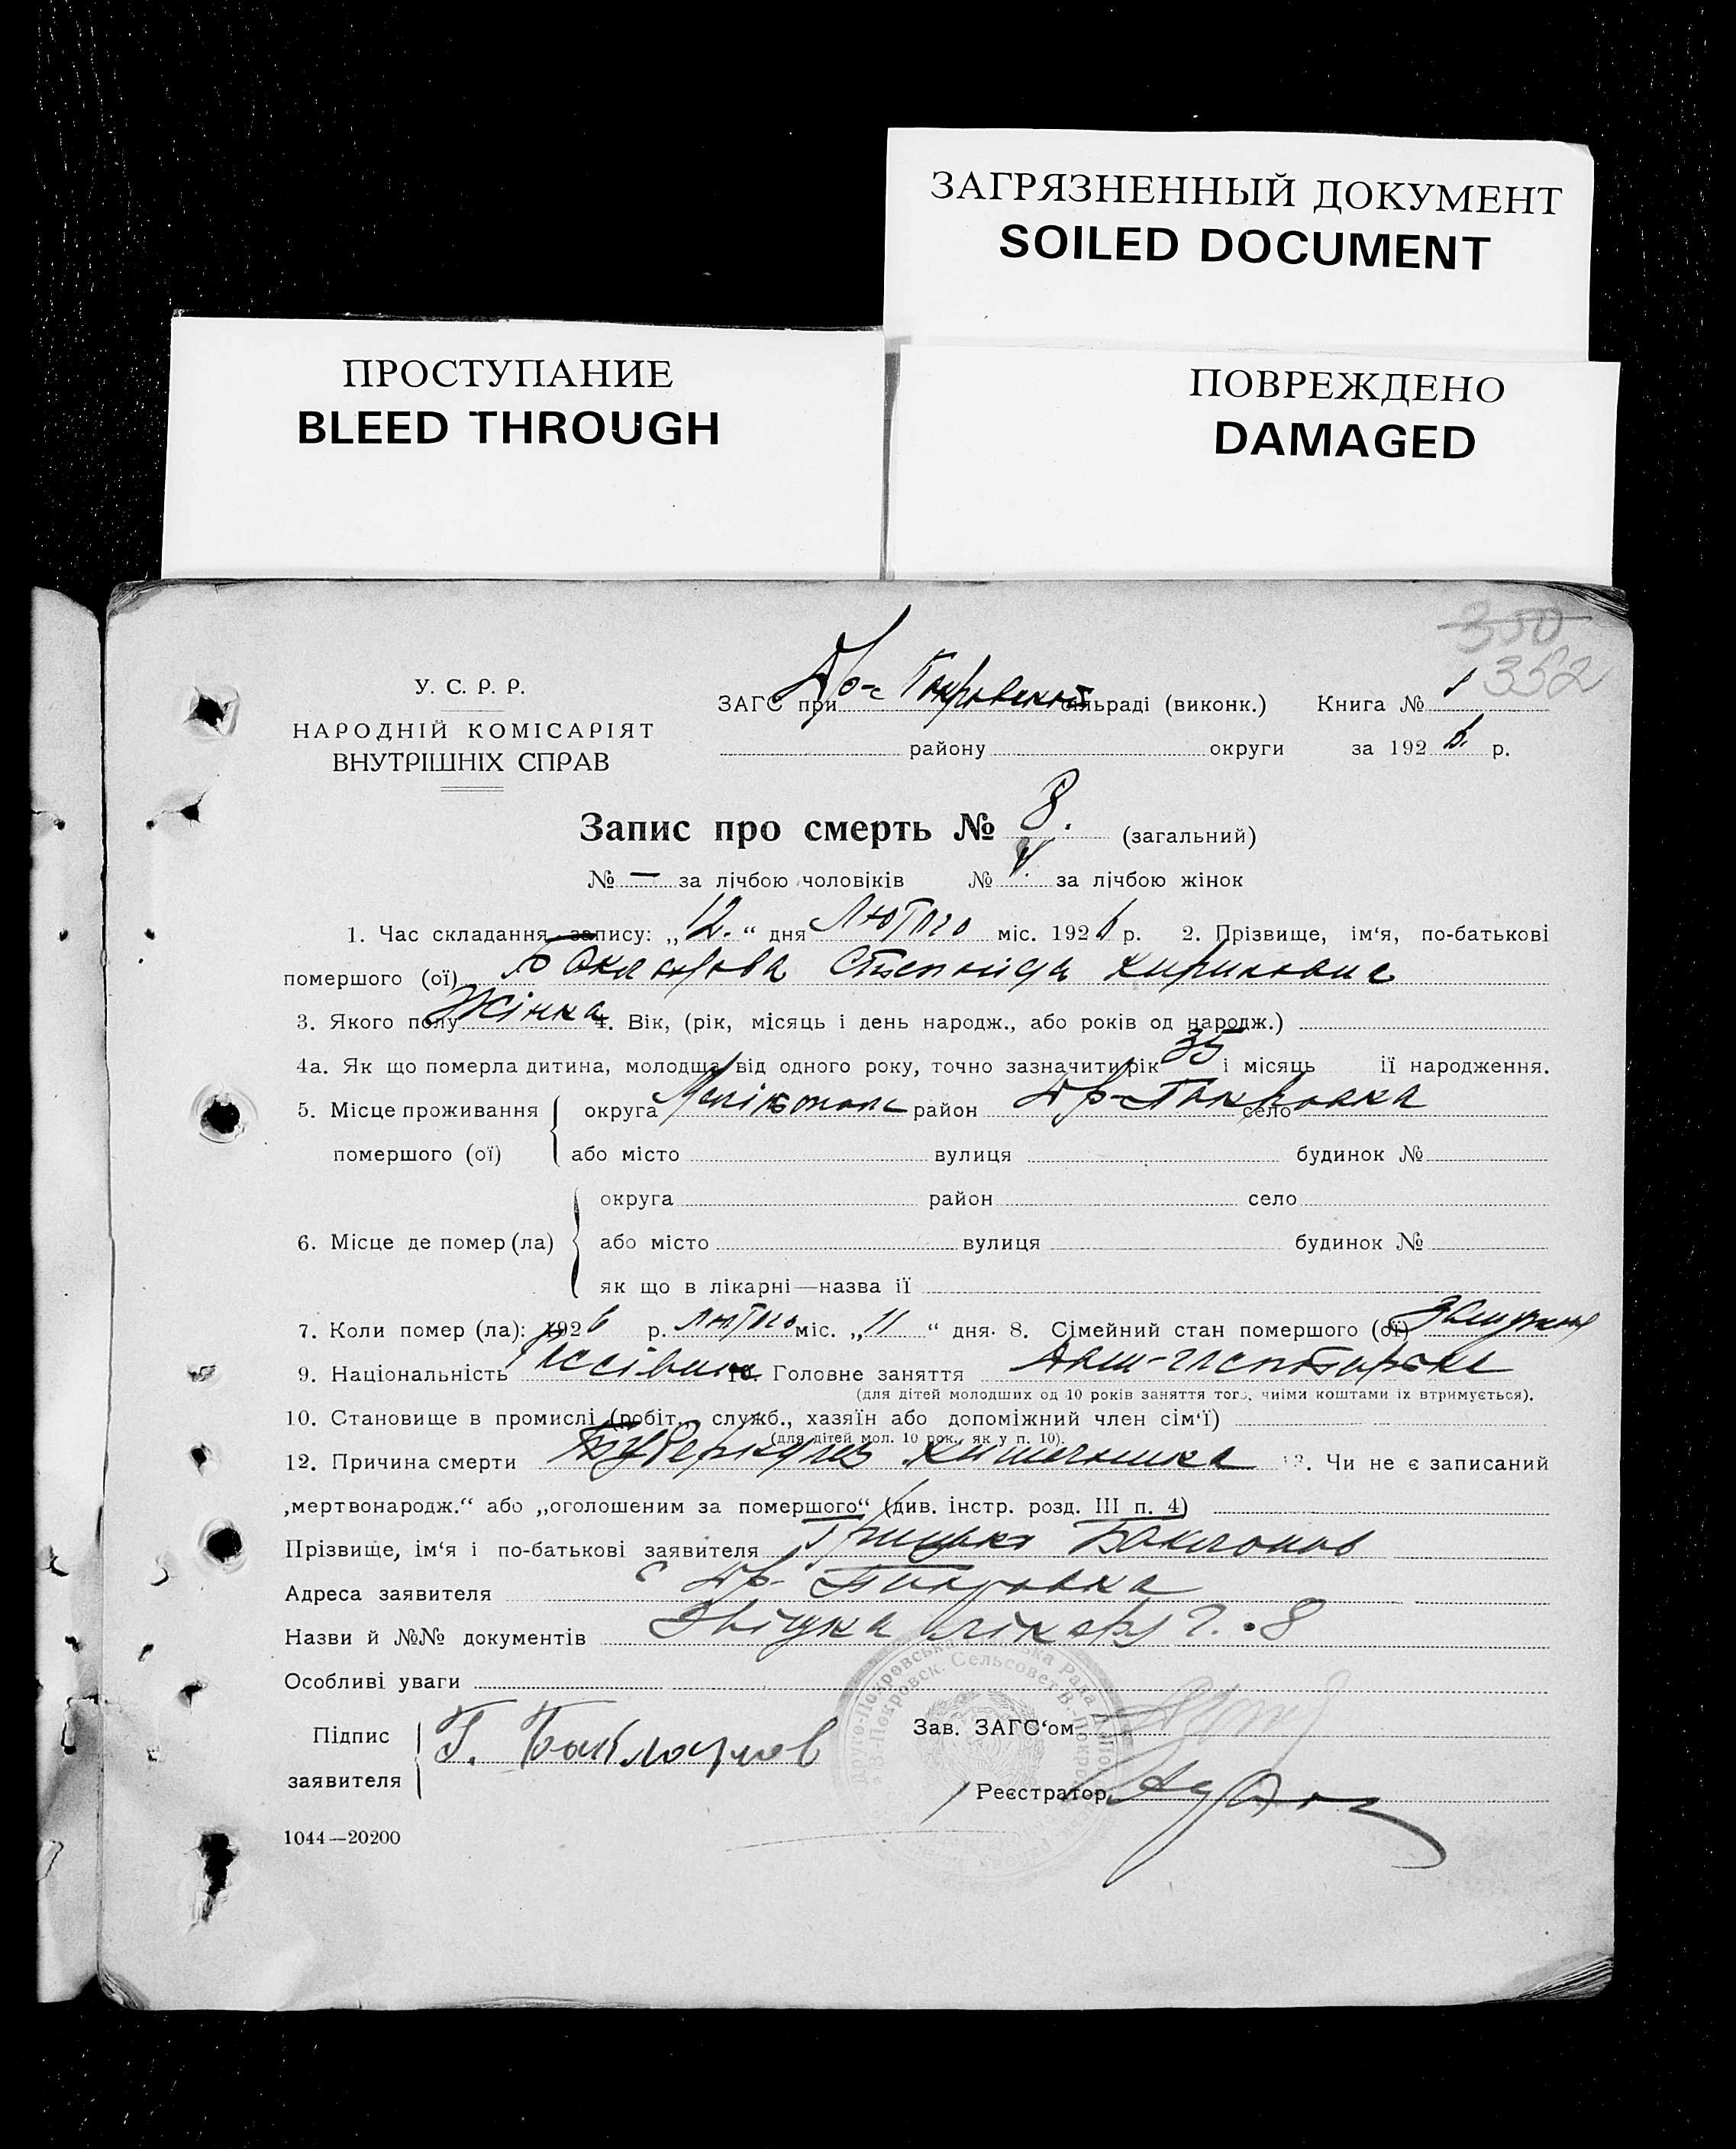 ЗАГРЯЗНЕННЫЙ ДОКУМЕНТ
SOILED DOCUMENT
ПРОСТУПАНИЕ
BLEED THROUGH
ПОВРЕЖДЕНО
DAMAGED
350
352
У. С. Р. Р.
НАРОДНІЙ КОМІСАРІЯТ
ВНУТРІШНІХ СПРАВ
ЗАГС при Др-Покровській сільраді (виконк.) Книга №
району округи за 1926 р.
Запис про смерть № 8. (загальний)
№ — за лічбою чоловіків № за лічбою жінок
1. Час складання запису: „12.“ дня Лютого міс. 1926 р. 2. Прізвище, ім‘я, по-батькові
помершого (ої)
3. Якого полу Жінка 4. Вік, (рік, місяць і день народж., або років од народж.)
4а. Як що померла дитина, молодша від одного року, точно зазначити рік 35 і місяць її народження.
5. Місце проживання округа район Др-Покровка село
помершого (ої) або місто вулиця будинок №
округа район село
6. Місце де помер (ла) або місто вулиця будинок №
як що в лікарні—назва її
7. Коли помер (ла): 1926 р. лютого міс. „11“ дня. 8. Сімейний стан помершого (ої) замужня
9. Національність 10. Головне заняття
(для дітей молодших од 10 років заняття того, чиїми коштами їх втримується).
10. Становище в промислі (робіт., служб., хазяїн або допоміжний член сім‘ї)
(для дітей мол. 10 рок. як у п. 10).
12. Причина смерти Туберкулез 13. Чи не є записаний
„мертвонародж.“ або „оголошеним за помершого“ (див. інстр. розд. III п. 4)
Прізвище, ім‘я і по-батькові заявителя Грицько Бакланов
Адреса заявителя с Др-Покровка
Назви й №№ документів лікаря 8
Особливі уваги
Підпис
заявителя
Г. Бакланов
Зав. ЗАГС‘ом
Реєстратор
1044—20200